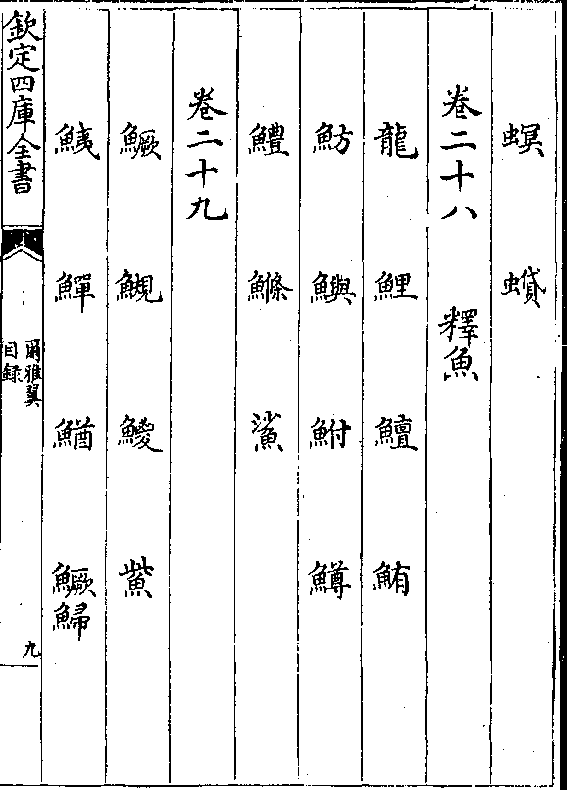 螟 蟘
卷二十八 釋魚
龍 鯉 鱣 鮪
魴 鱮 鮒 鱒
鱧 鰷 鯊
卷二十九
鱖 鯢 鯪 鮆
鮧 鱓 鰌 鱖鯞
欽定四庫全書
爾雅翼
目録
九